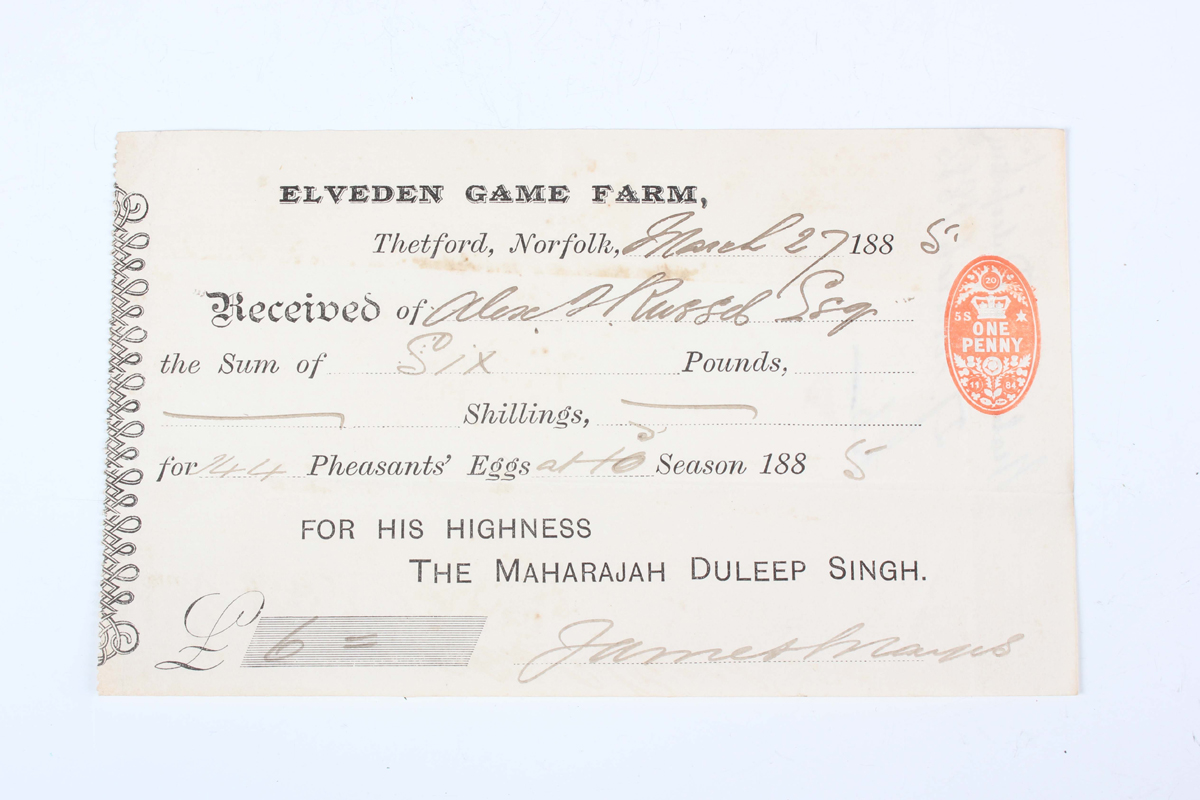 ELVEDEN GAME FARM,
Thetford, Norfolk, March 27 188 5.
Received of Alex Russel Esq
the Sum of Six Pounds,
Shillings,
for 144 Pheasants' Eggs at 10 Season 188 5
FOR HIS HIGHNESS
THE MAHARAJAH DULEEP SINGH.
£ 6 =
James Mayes
20
5S
ONE
PENNY
11 84